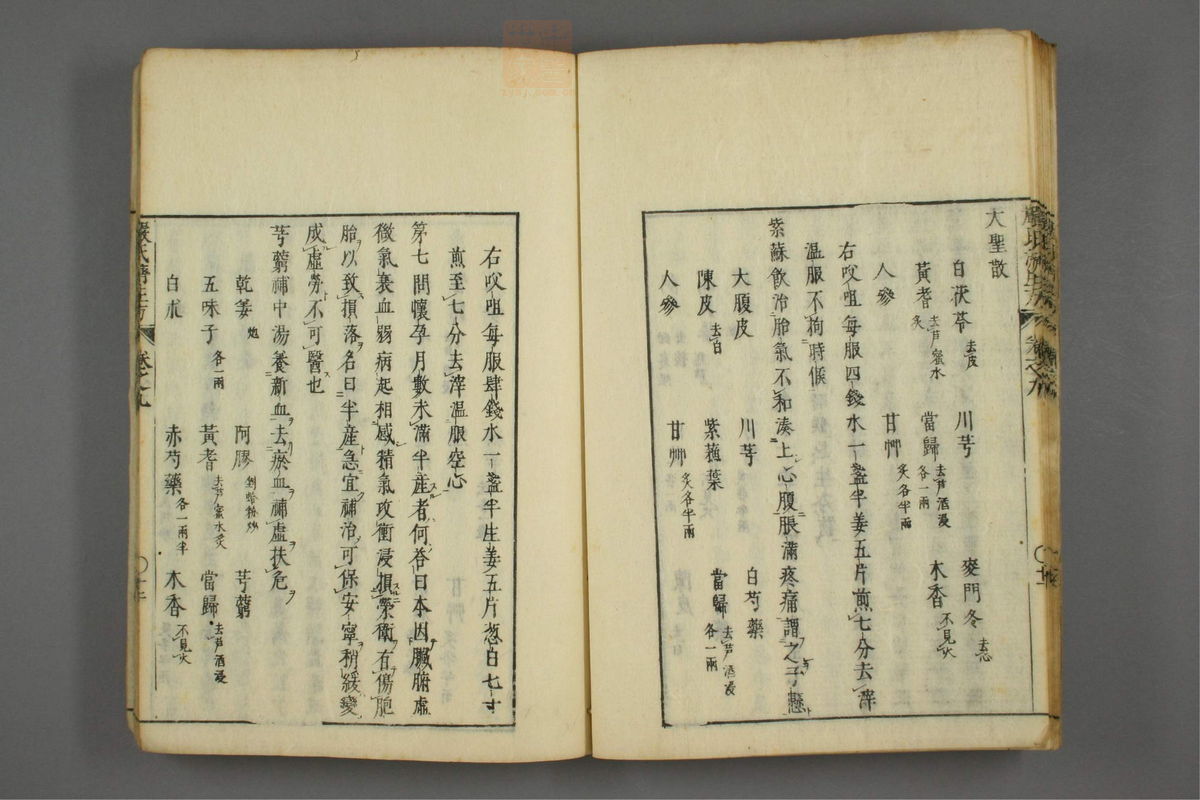 大聖散
白茯苓去皮 川芎 麥門冬去心
黃耆去芦蜜水炙 當歸去芦酒浸各一兩 木香不見火
人參 甘艸炙各半兩
右㕮咀每服四錢水一盞半姜五片煎七分去滓
温服不拘時候
紫蘇飲治胎氣不和湊上心腹脹滿疼痛謂之子懸
大腹皮 川芎 白芍藥
陳皮去白 紫蘓葉 當歸去芦酒浸各一兩
人參 甘艸炙各半兩
右㕮咀每服肆錢水一盞半生姜五片葱白七寸
煎至七分去滓温服空心
第七問懷孕月數未滿半産者何荅曰本因臟腑虛
微氣衰血弱病起相感精氣攻衝浸損榮衛有傷胞
胎以致損落名曰半産急宜補治可保安寧稍緩變
成虛勞不可醫也
芎藭補中湯養新血去瘀血補虛扶危
乾姜炮 阿膠剉蛤粉炒 芎藭
五味子各一兩 黃耆去芦蜜水炙 當歸去芦酒浸
白朮 赤芍藥各一兩半 木香不見火
嚴氏濟生方 卷之九